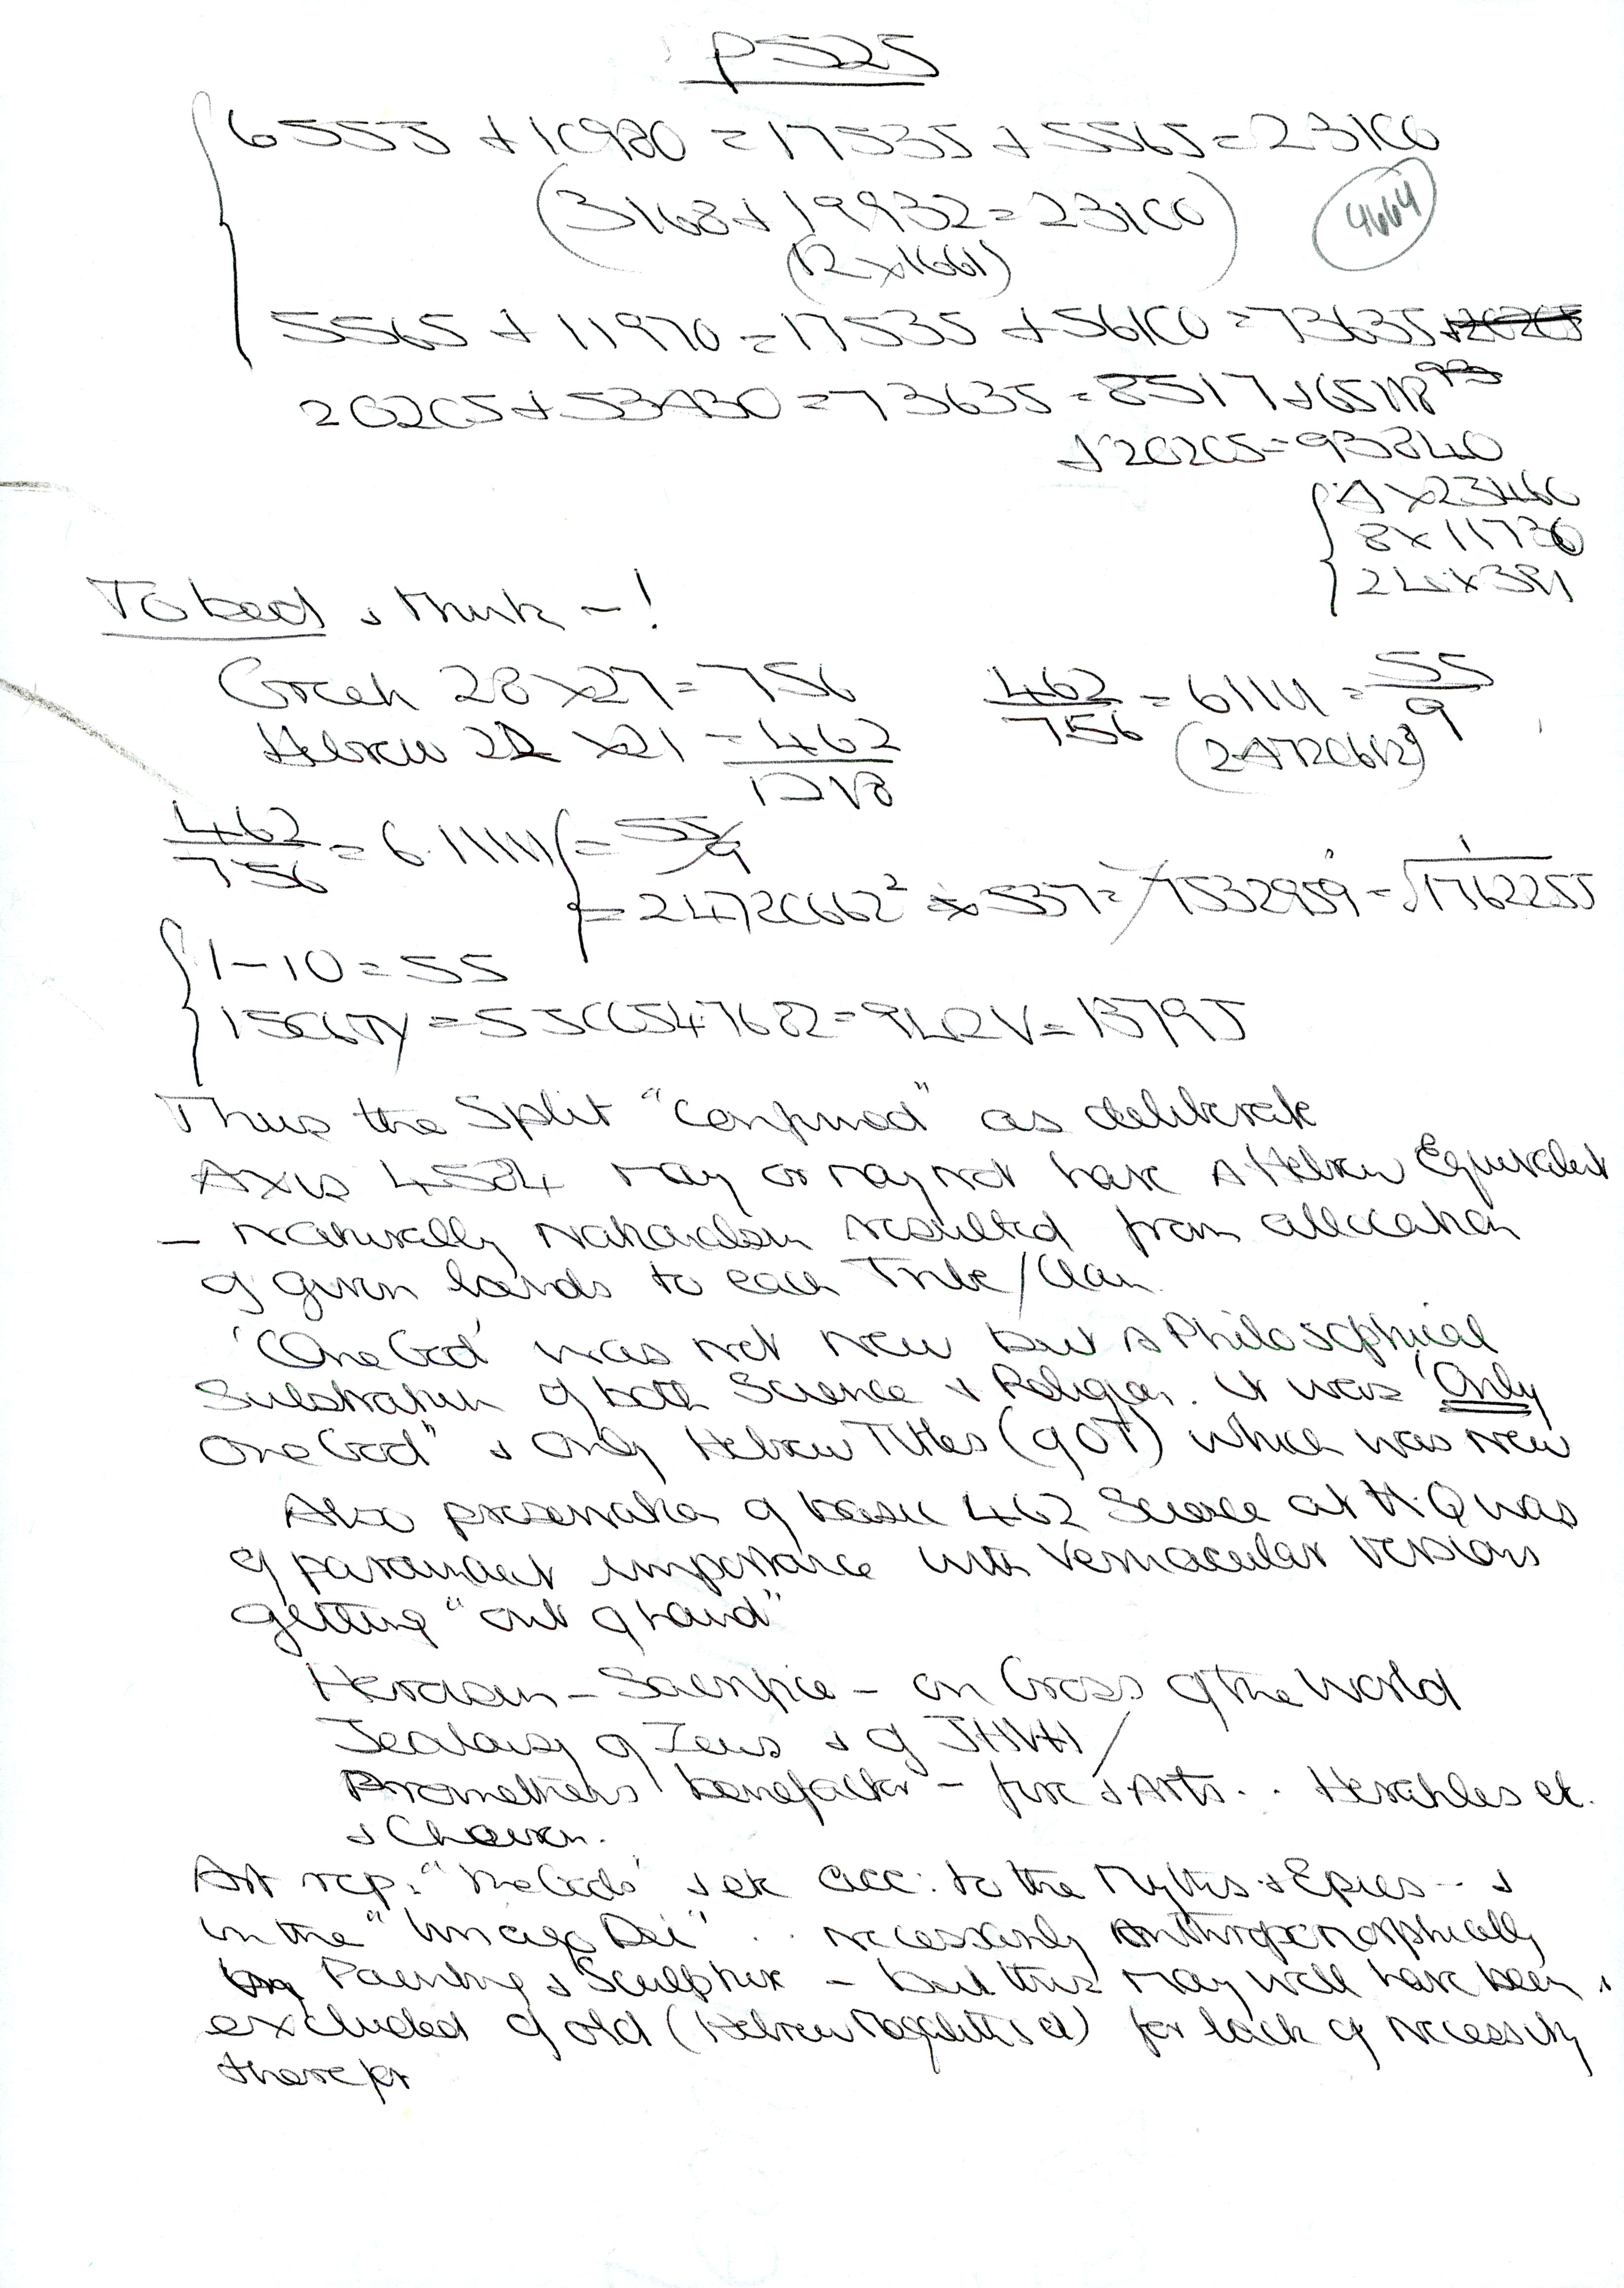 P525
6555 + 10980 = 17535 + 5565 = 23100
(3168 + 19932 = 23100)
4664
(12 x 1661)
5565 + 11970 = 17535 + 56100 = 73635
20205 + 53430 = 73635 = 8517 + 65118
+ 20205 = 93840
4 x 23460
8 x 11730
24 x 391
To bed & think - !
Greek 28 x 27 = 756
Hebrew 22 x 21 = 462
1218
462/756 = 61111 = 55/9
(24720662²)
462/756 = 6.11111 = 55/9
= 24720662² x 537 = 7532959 = √1762255
1-10 = 55
= 5506547682 = = 13795
Thus the Split "Confirmed" as deliberate
Axis 4584 may or may not have a Hebrew Equivalent
- Naturally Nationalism resulted from allocation
of given lands to each Tribe/Clan.
'One God' was not new but a Philosophical
Substratum of both Science & Religion. It was 'Only
One God" & only Hebrew Titles (9OT) which was new
Also preservation of basic 462 Science at H.Q was
of paramount importance with vernacular versions
getting "out of hand"
- Sacrifice - on Cross of the World
Jealousy of Zeus & of JHVH/
Prometheus benefactor - fire & Arts. . Herakles et.
& Cheiron.
Art rep. "the Gods" & etc acc: to the Myths & Epics - - &
in the "Imago Dei" . . necessarily Anthropomorphically
by Painting & Sculpture - but this may well have been
excluded of old (Hebrew Megaliths et) for lack of necessity
therefor